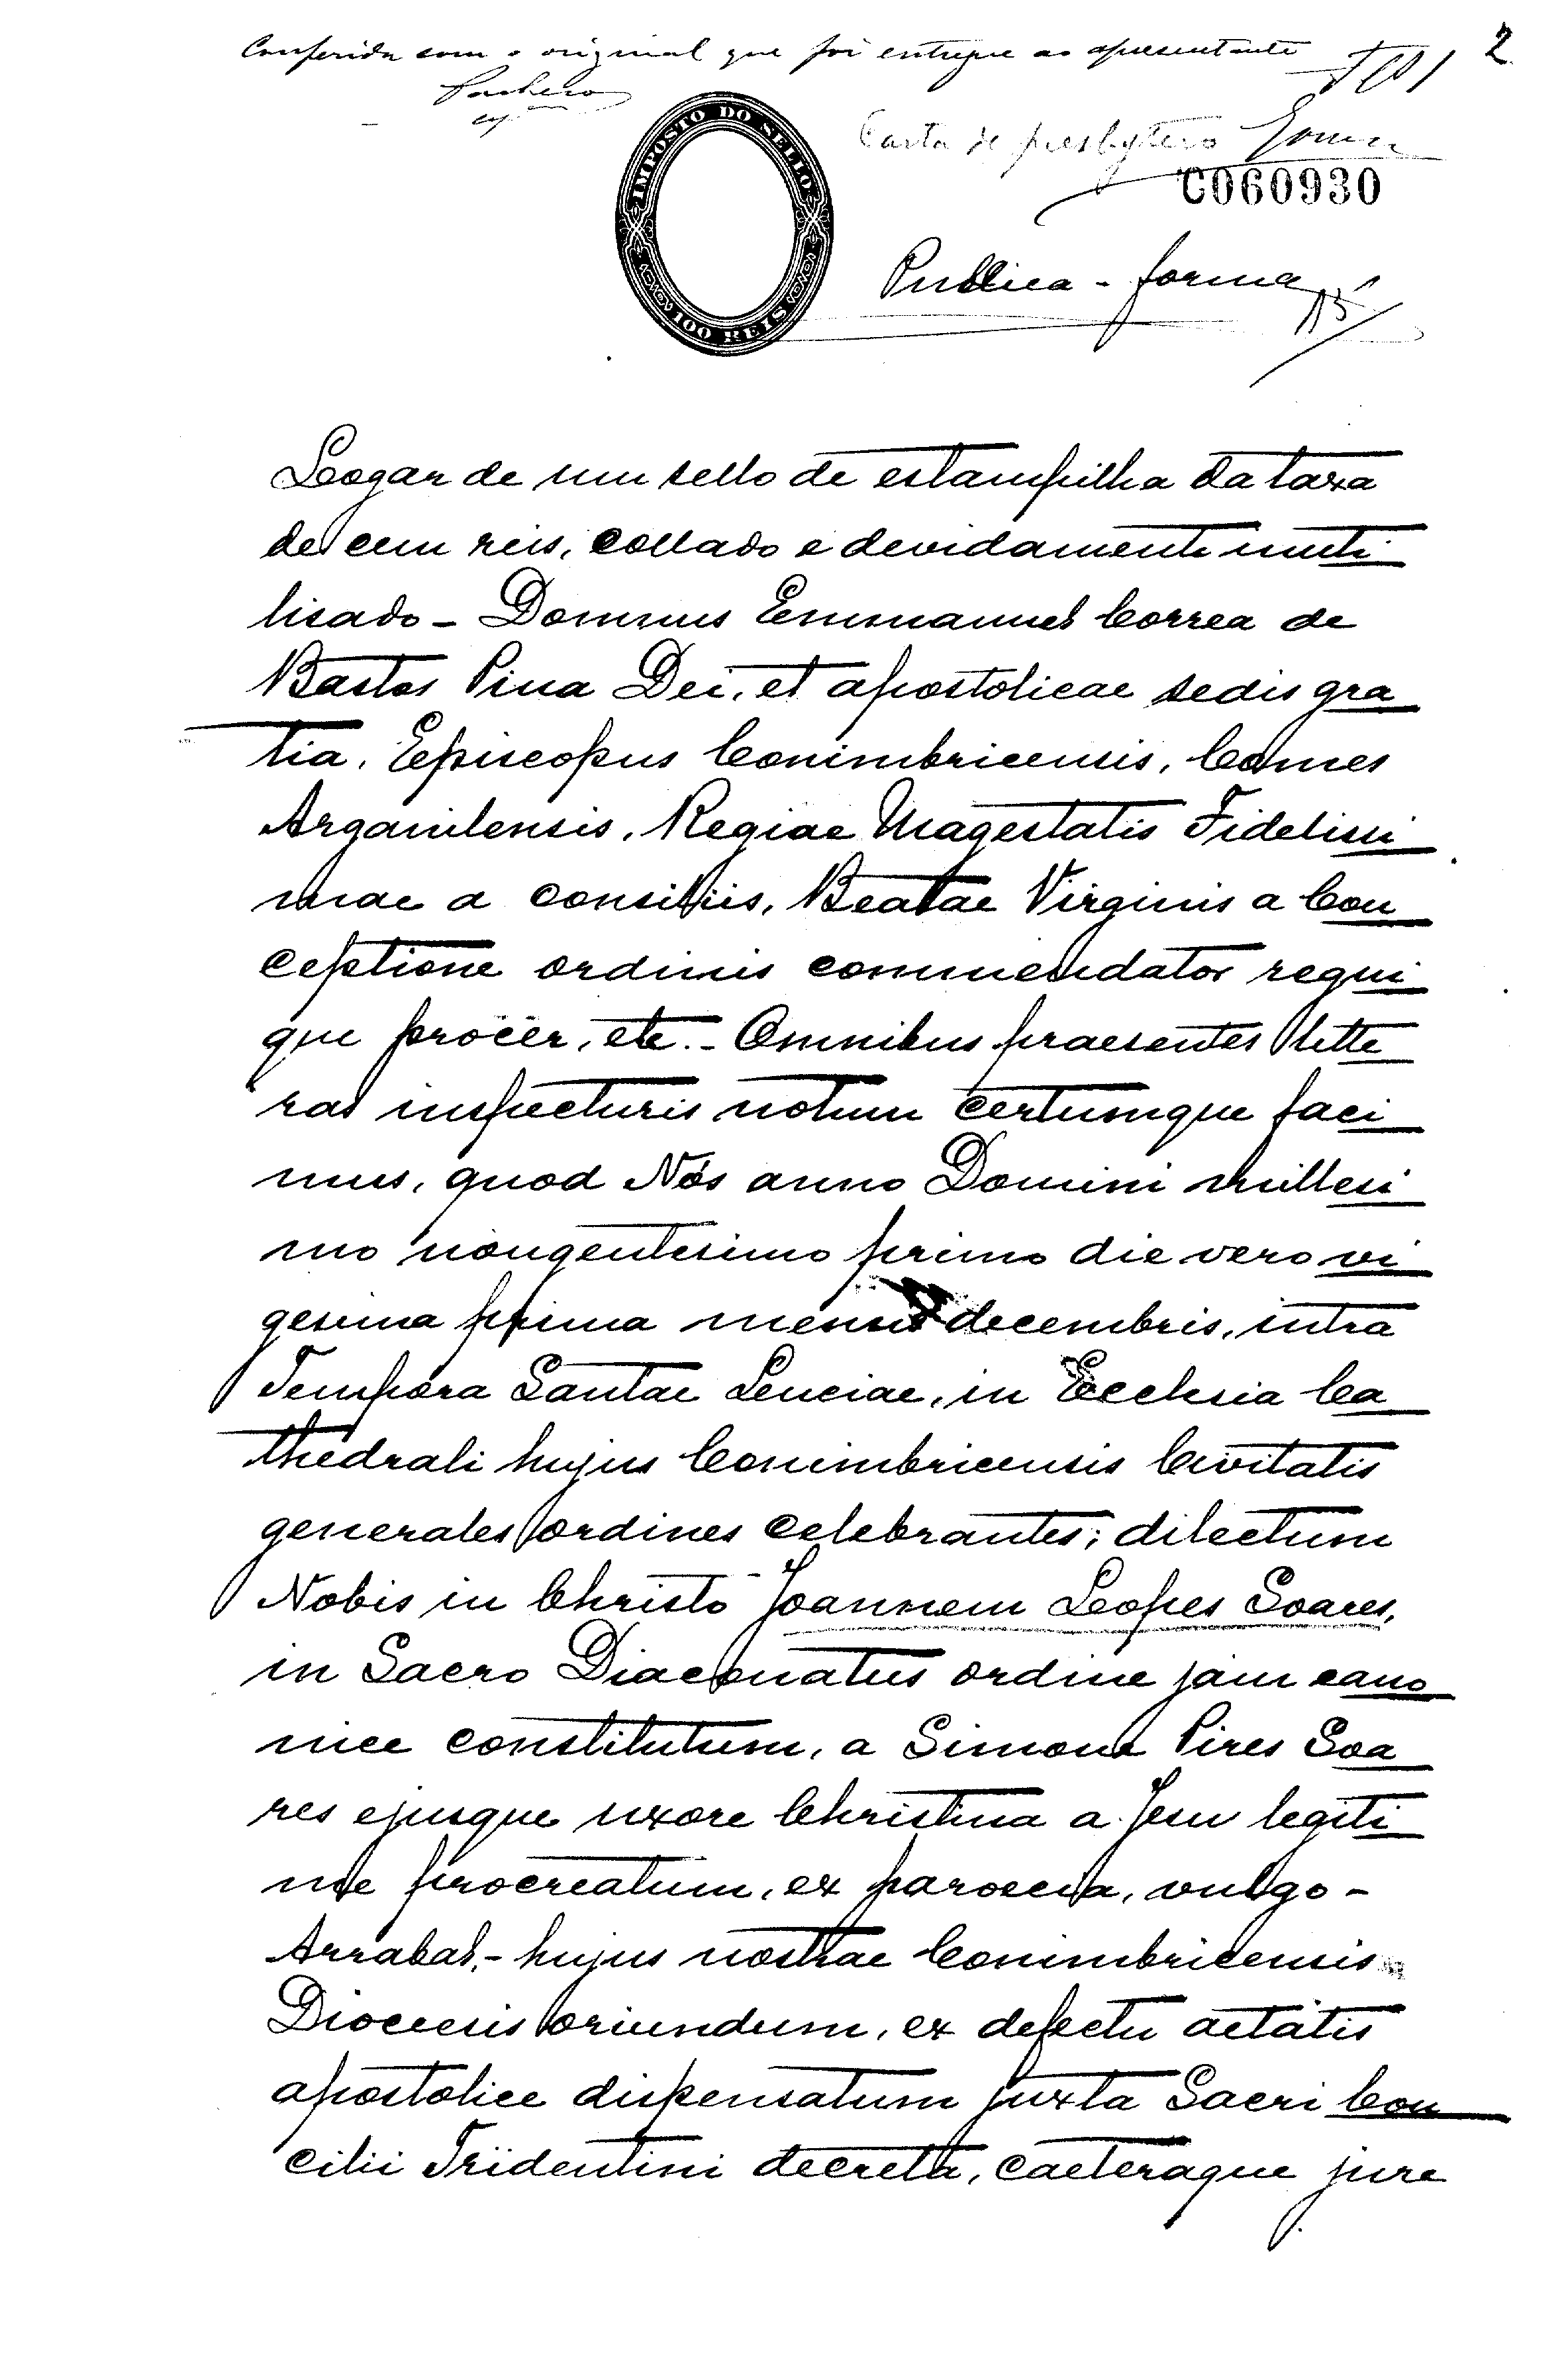 Conferida com o original que foi entregue ao apresentante
2
Pacheco
IMPOSTO DO SELLO
100 REIS
Carta de presbytero
C060930
Publica-forma
Logar de um sello de estampilha da taxa
de cem reis, collado e devidamente inuti
lisado - Domnus Emmanuel Correa de
Bastos Pina Dei, et apostolicae sedis gra
tia, Episcopus Conimbricensis, Comes
Arganilensis, Regiae Magestatis Fidelissi
mae a consiliis, Beatae Virginis a Con
ceptione ordinis commendator regni
que procer, etc. - Omnibus praesentes litte
ras inspecturis notum certumque faci
mus, quod Nós anno Domini millesi
mo nongentesimo primo die vero vi
gesima prima mensis decembris, intra
Tempora Santae Luciae, in Ecclesia Ca
thedrali hujus Conimbricensis Civitatis
generales ordines celebrantes; dilectum
Nobis in Christo Joannem Lopes Soares,
in Sacro Diaconatus ordine jam cano
nice constitutum, a Simone Pires Soa
res ejusque uxore Christina a Jesu legiti
me procreatum, ex paroecia, vulgo -
Arrabal, - hujus nostrae Conimbricensis
Diocecis oriundum, ex defectu aetatis
apostolice dispensatum juxta Sacri Con
cilii Tridentini decreta, caeteraque jure